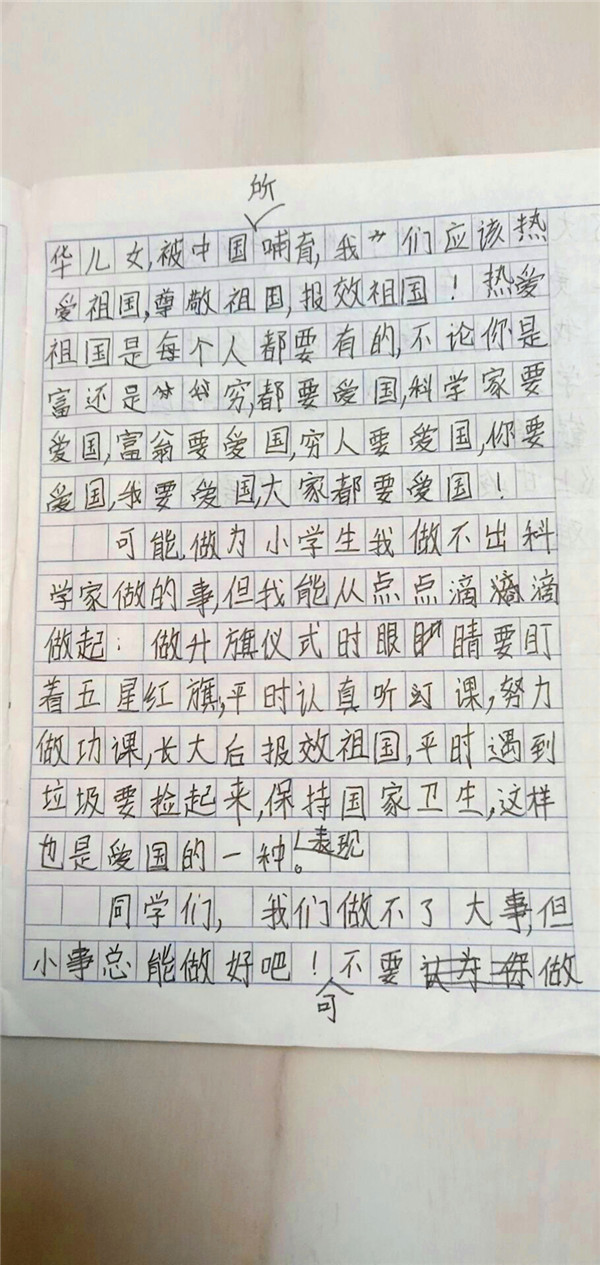 所
华儿女,被中国哺育,我们应该热
爱祖国,尊敬祖国,报效祖国！热爱
祖国是每个人都要有的,不论你是
富还是穷,都要爱国,科学家要
爱国,富翁要爱国,穷人要爱国,你要
爱国,我要爱国,大家都要爱国！
可能做为小学生我做不出科
学家做的事,但我能从点点滴滴
做起：做升旗仪式时眼睛要盯
着五星红旗,平时认真听课,努力
做功课,长大后报效祖国,平时遇到
垃圾要捡起来,保持国家卫生,这样
也是爱国的一种表现。
同学们,我们做不了大事,但
小事总能做好吧！不要做
可